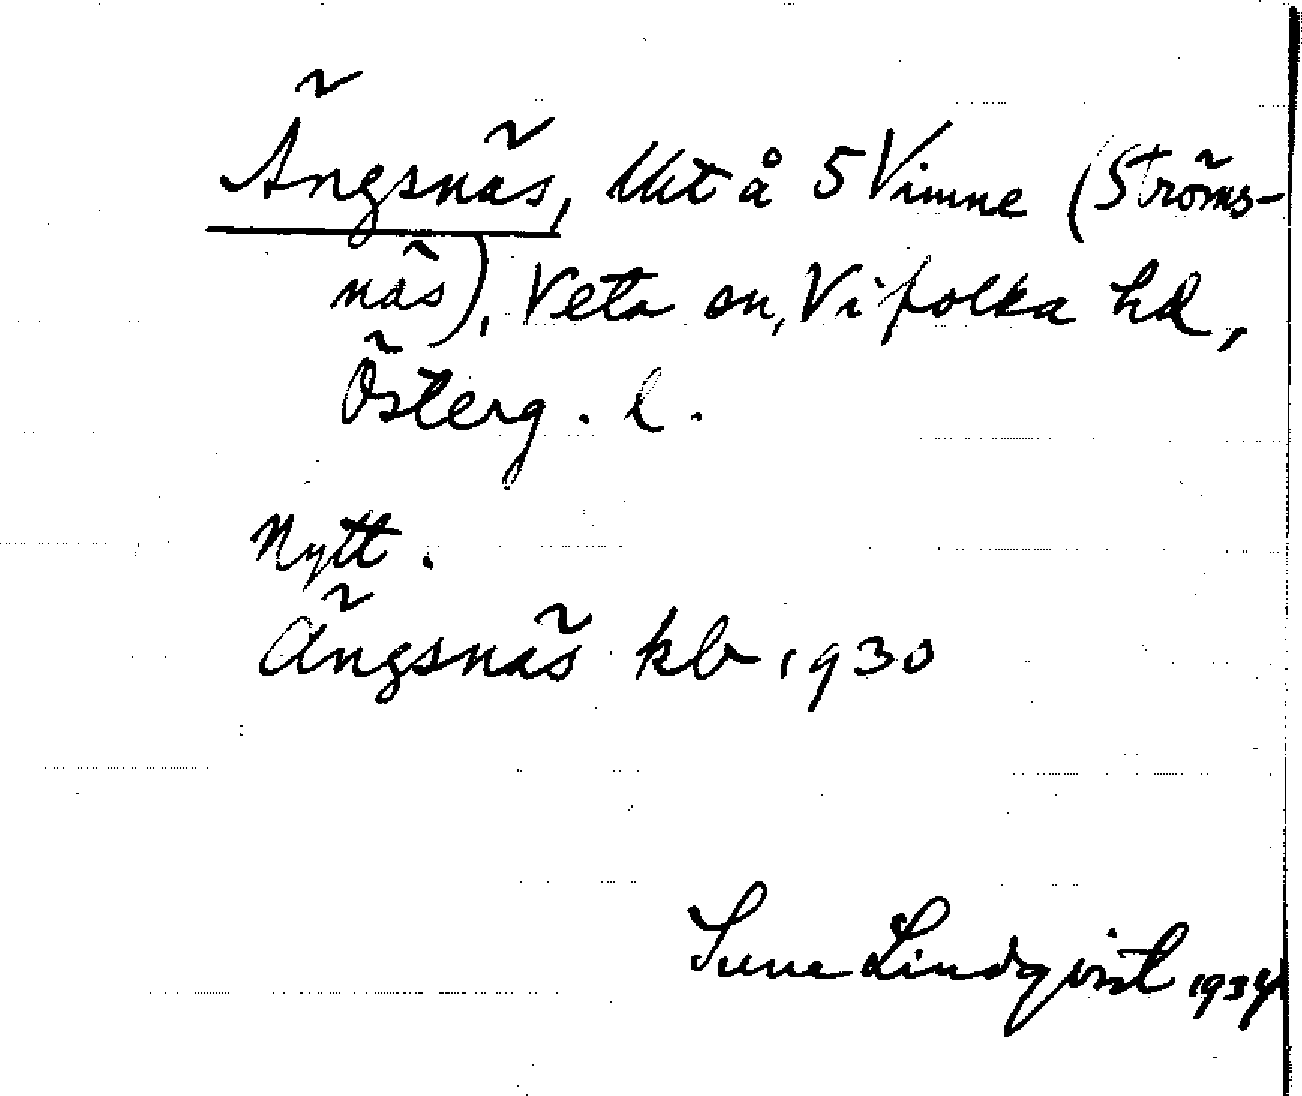 Ängsnäs, Utt å 5 Vimne (Ströms-
näs), Veta sn, Vifolka hd,
Österg. l.
Nytt.
Ängsnäs kb 1930
Sune Lindqvist 1934